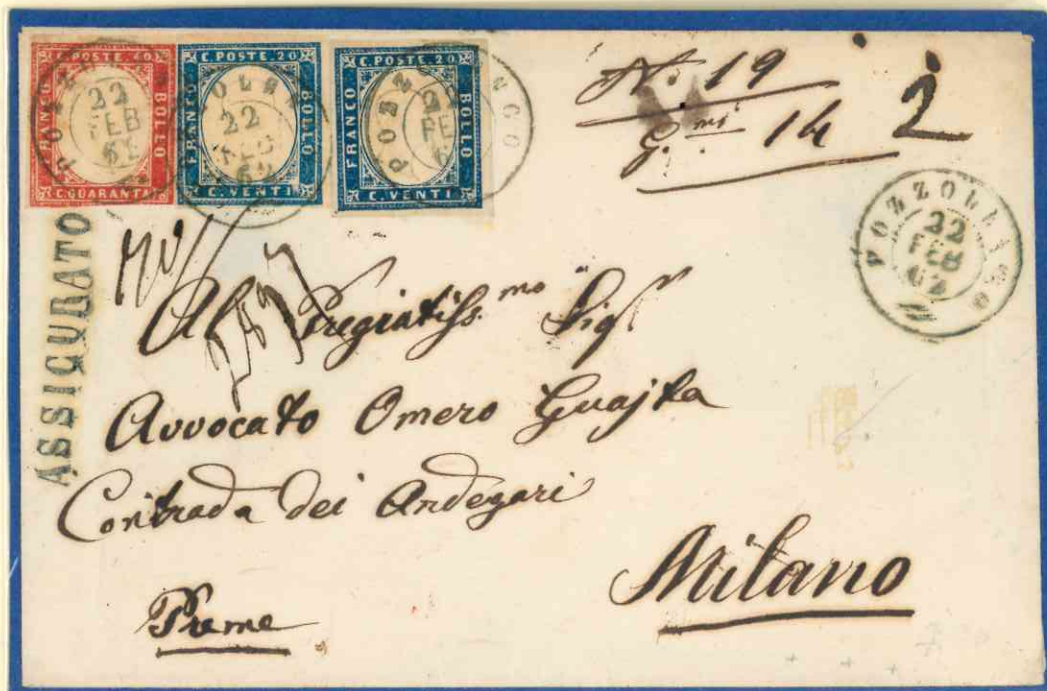 C. POSTE. 40
FRANCO
BOLLO
C. QUARANTA
22
FEB
62
C. POSTE. 20
FRANCO
BOLLO
C. VENTI
22
FEB
62
C. POSTE. 20
FRANCO
BOLLO
C. VENTI
N.º 19
G.mi 14
2
POZZOLENGO
22
FEB
62
ASSIGURATO
Al Pregiatiss.mo Sigr
Avvocato Omero Guajta
Contrada dei Andegari
Milano
Preme